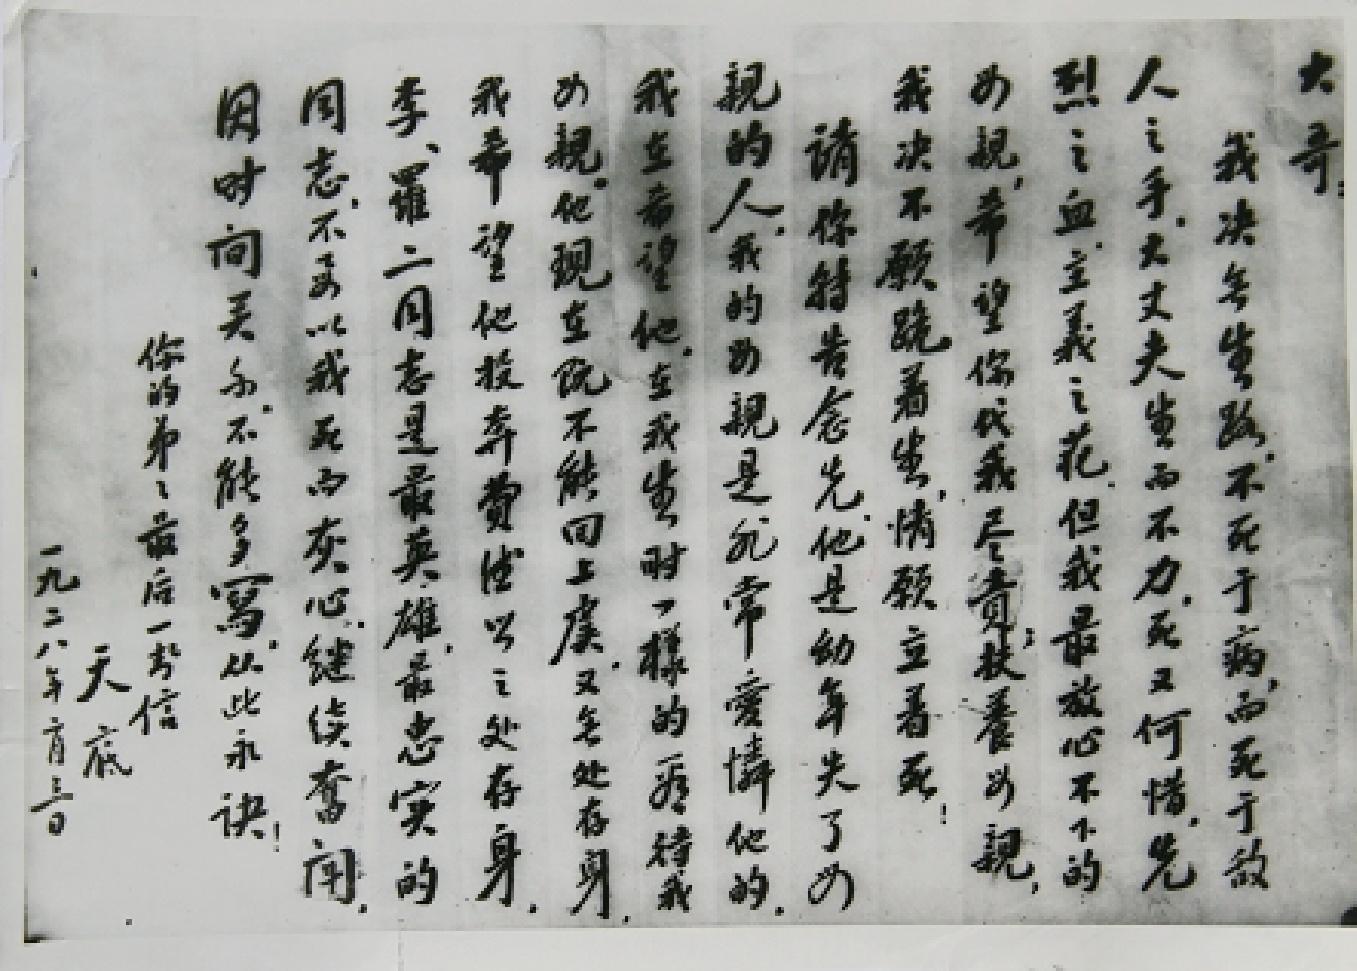 大哥：
我决无生路，不死于病，而死于敌
人之手，大丈夫生而不力，死又何惜，先
烈之血，主义之花，但我最放心不下的
母親，希望你代我尽責，扶養母親，
我决不願跪着生，情願立着死！
請你特告念先，他是幼年失了母
親的人，我的母親是非常愛憐他的．
我在希望他，在我生时一樣的看待我
母親，他現在既不能回上虞，又无处存身，
我希望他投奔費德以之处存身．
李、羅二同志是最英雄，最忠实的
同志，不要以我死而灰心，継续奮闘．
因时间关系，不能多寫，从此永訣！
你的弟弟最后一封信
天底
一九二八年六月三日